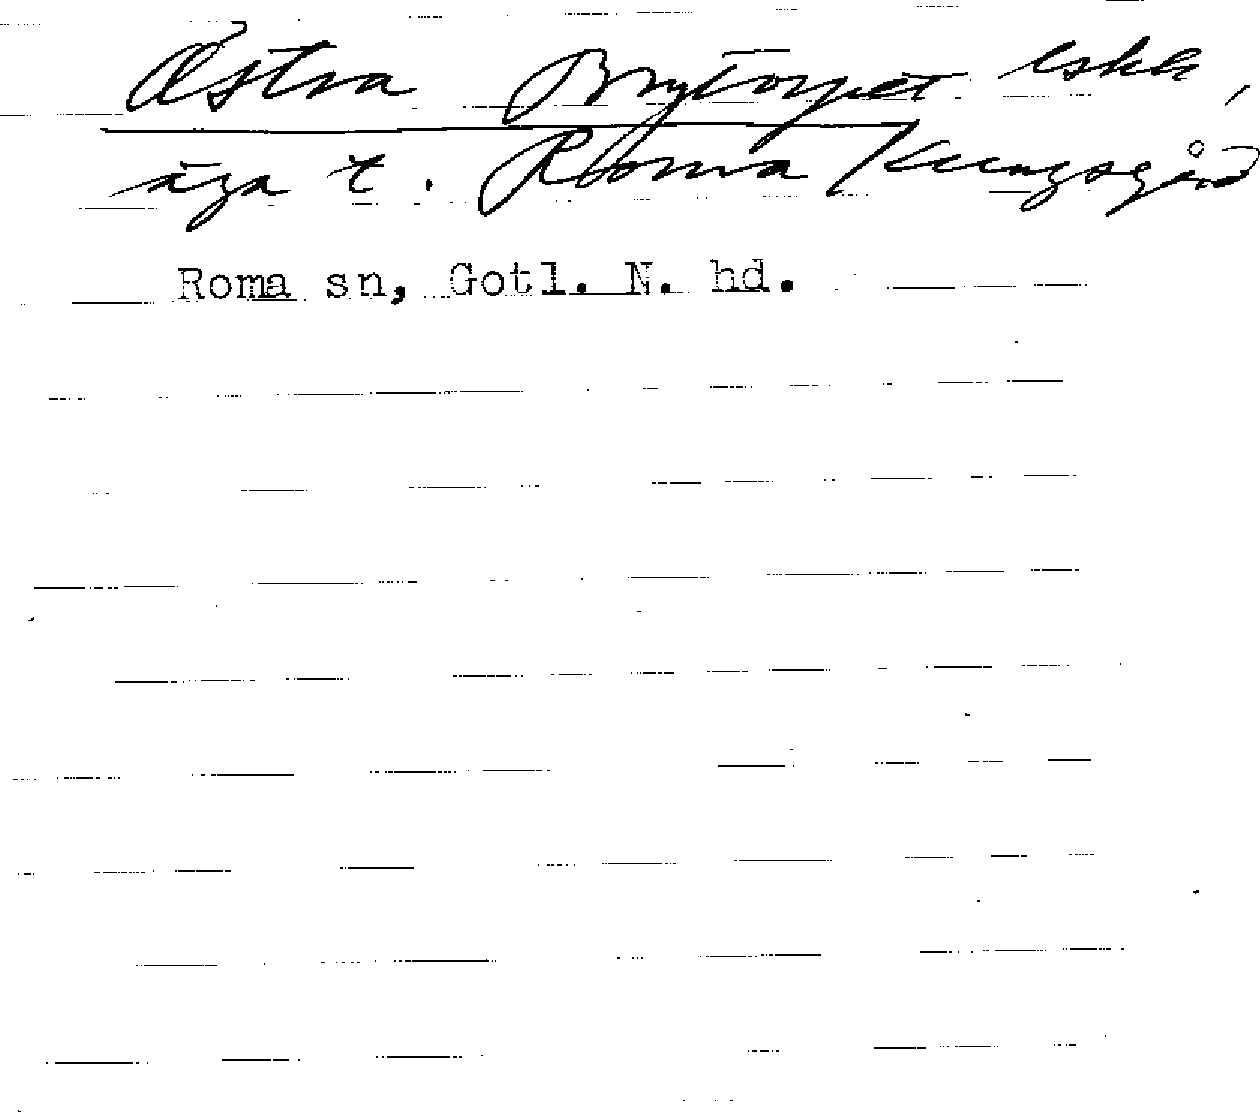 Östra Brytorpet
äga t. Roma Kungsgård
Roma sn, Gotl. N. hd.